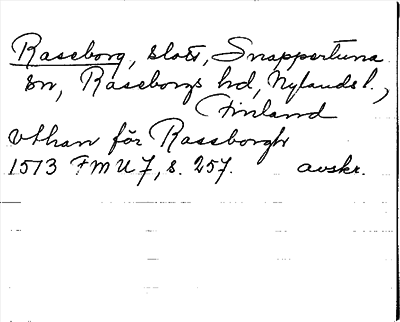 Raseborg, slott, Snappertuna
sn, Raseborgs hd, Nylands l.,
Finland
vthan för Rassborgh
1513 FMU 7, s. 257. avskr.